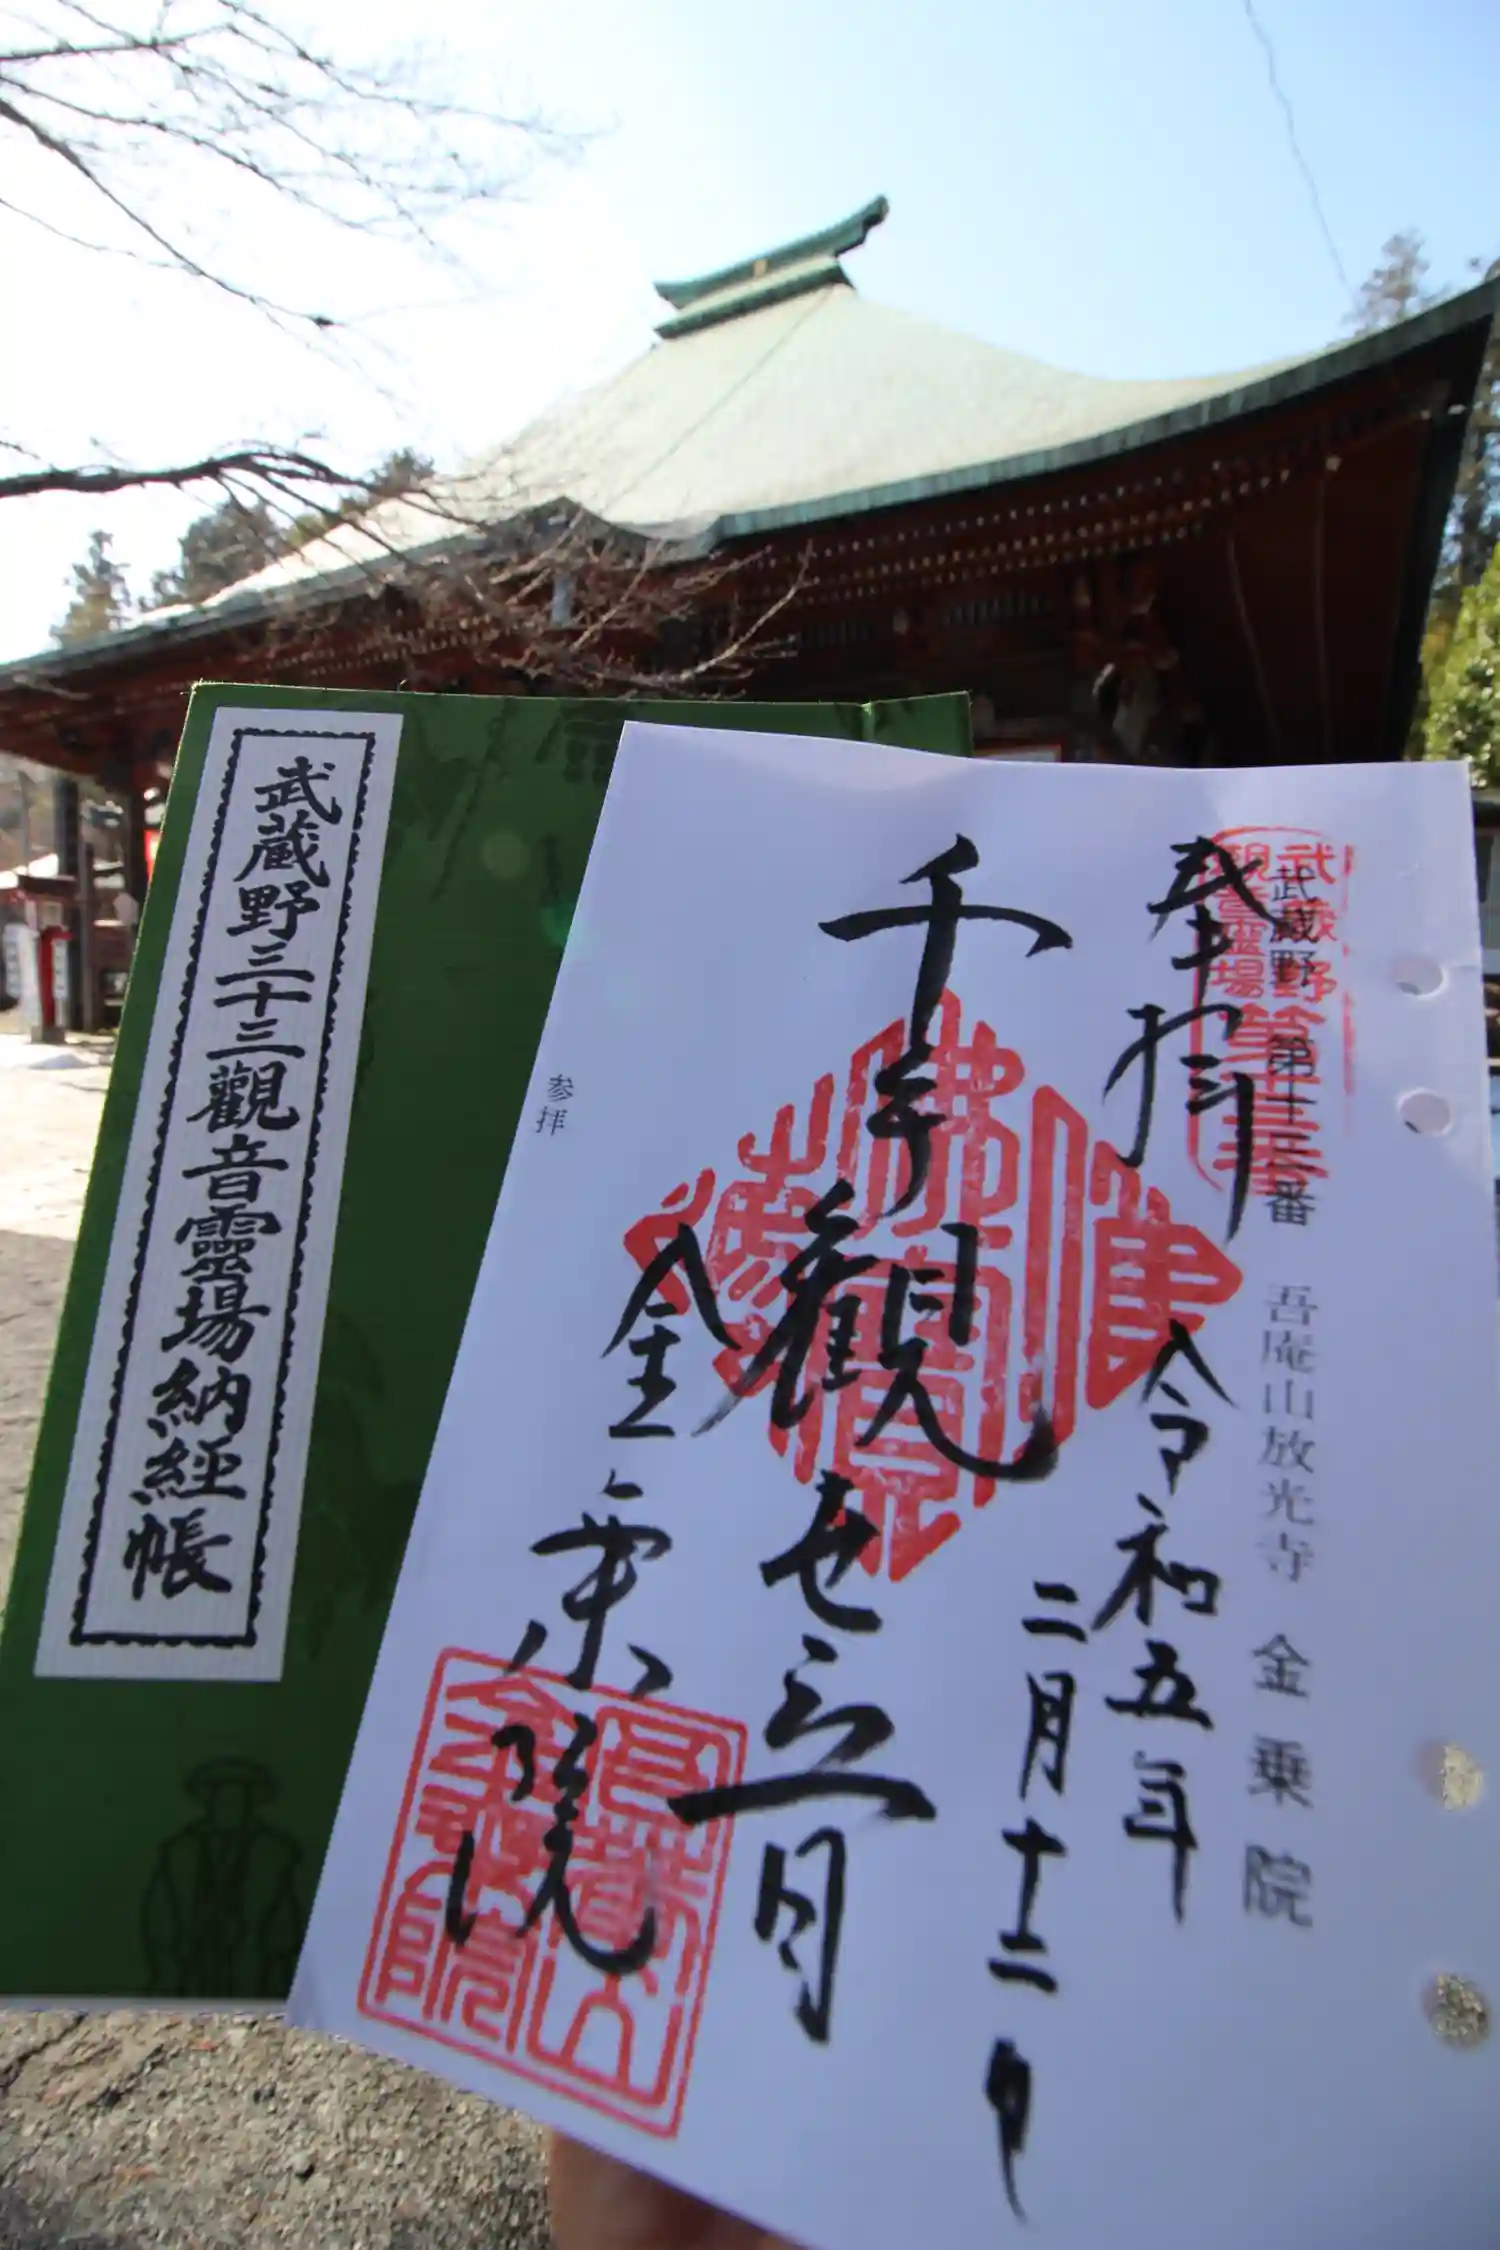 武蔵野三十三觀音靈場納経帳
武蔵野第十三番 吾庵山放光寺 金乗院
武蔵野
觀音霊場
第十三番
奉拝 令和五年
二月十二日
千手観世音
金乗院
参拝
佛法僧寶
吾庵山
金乗院